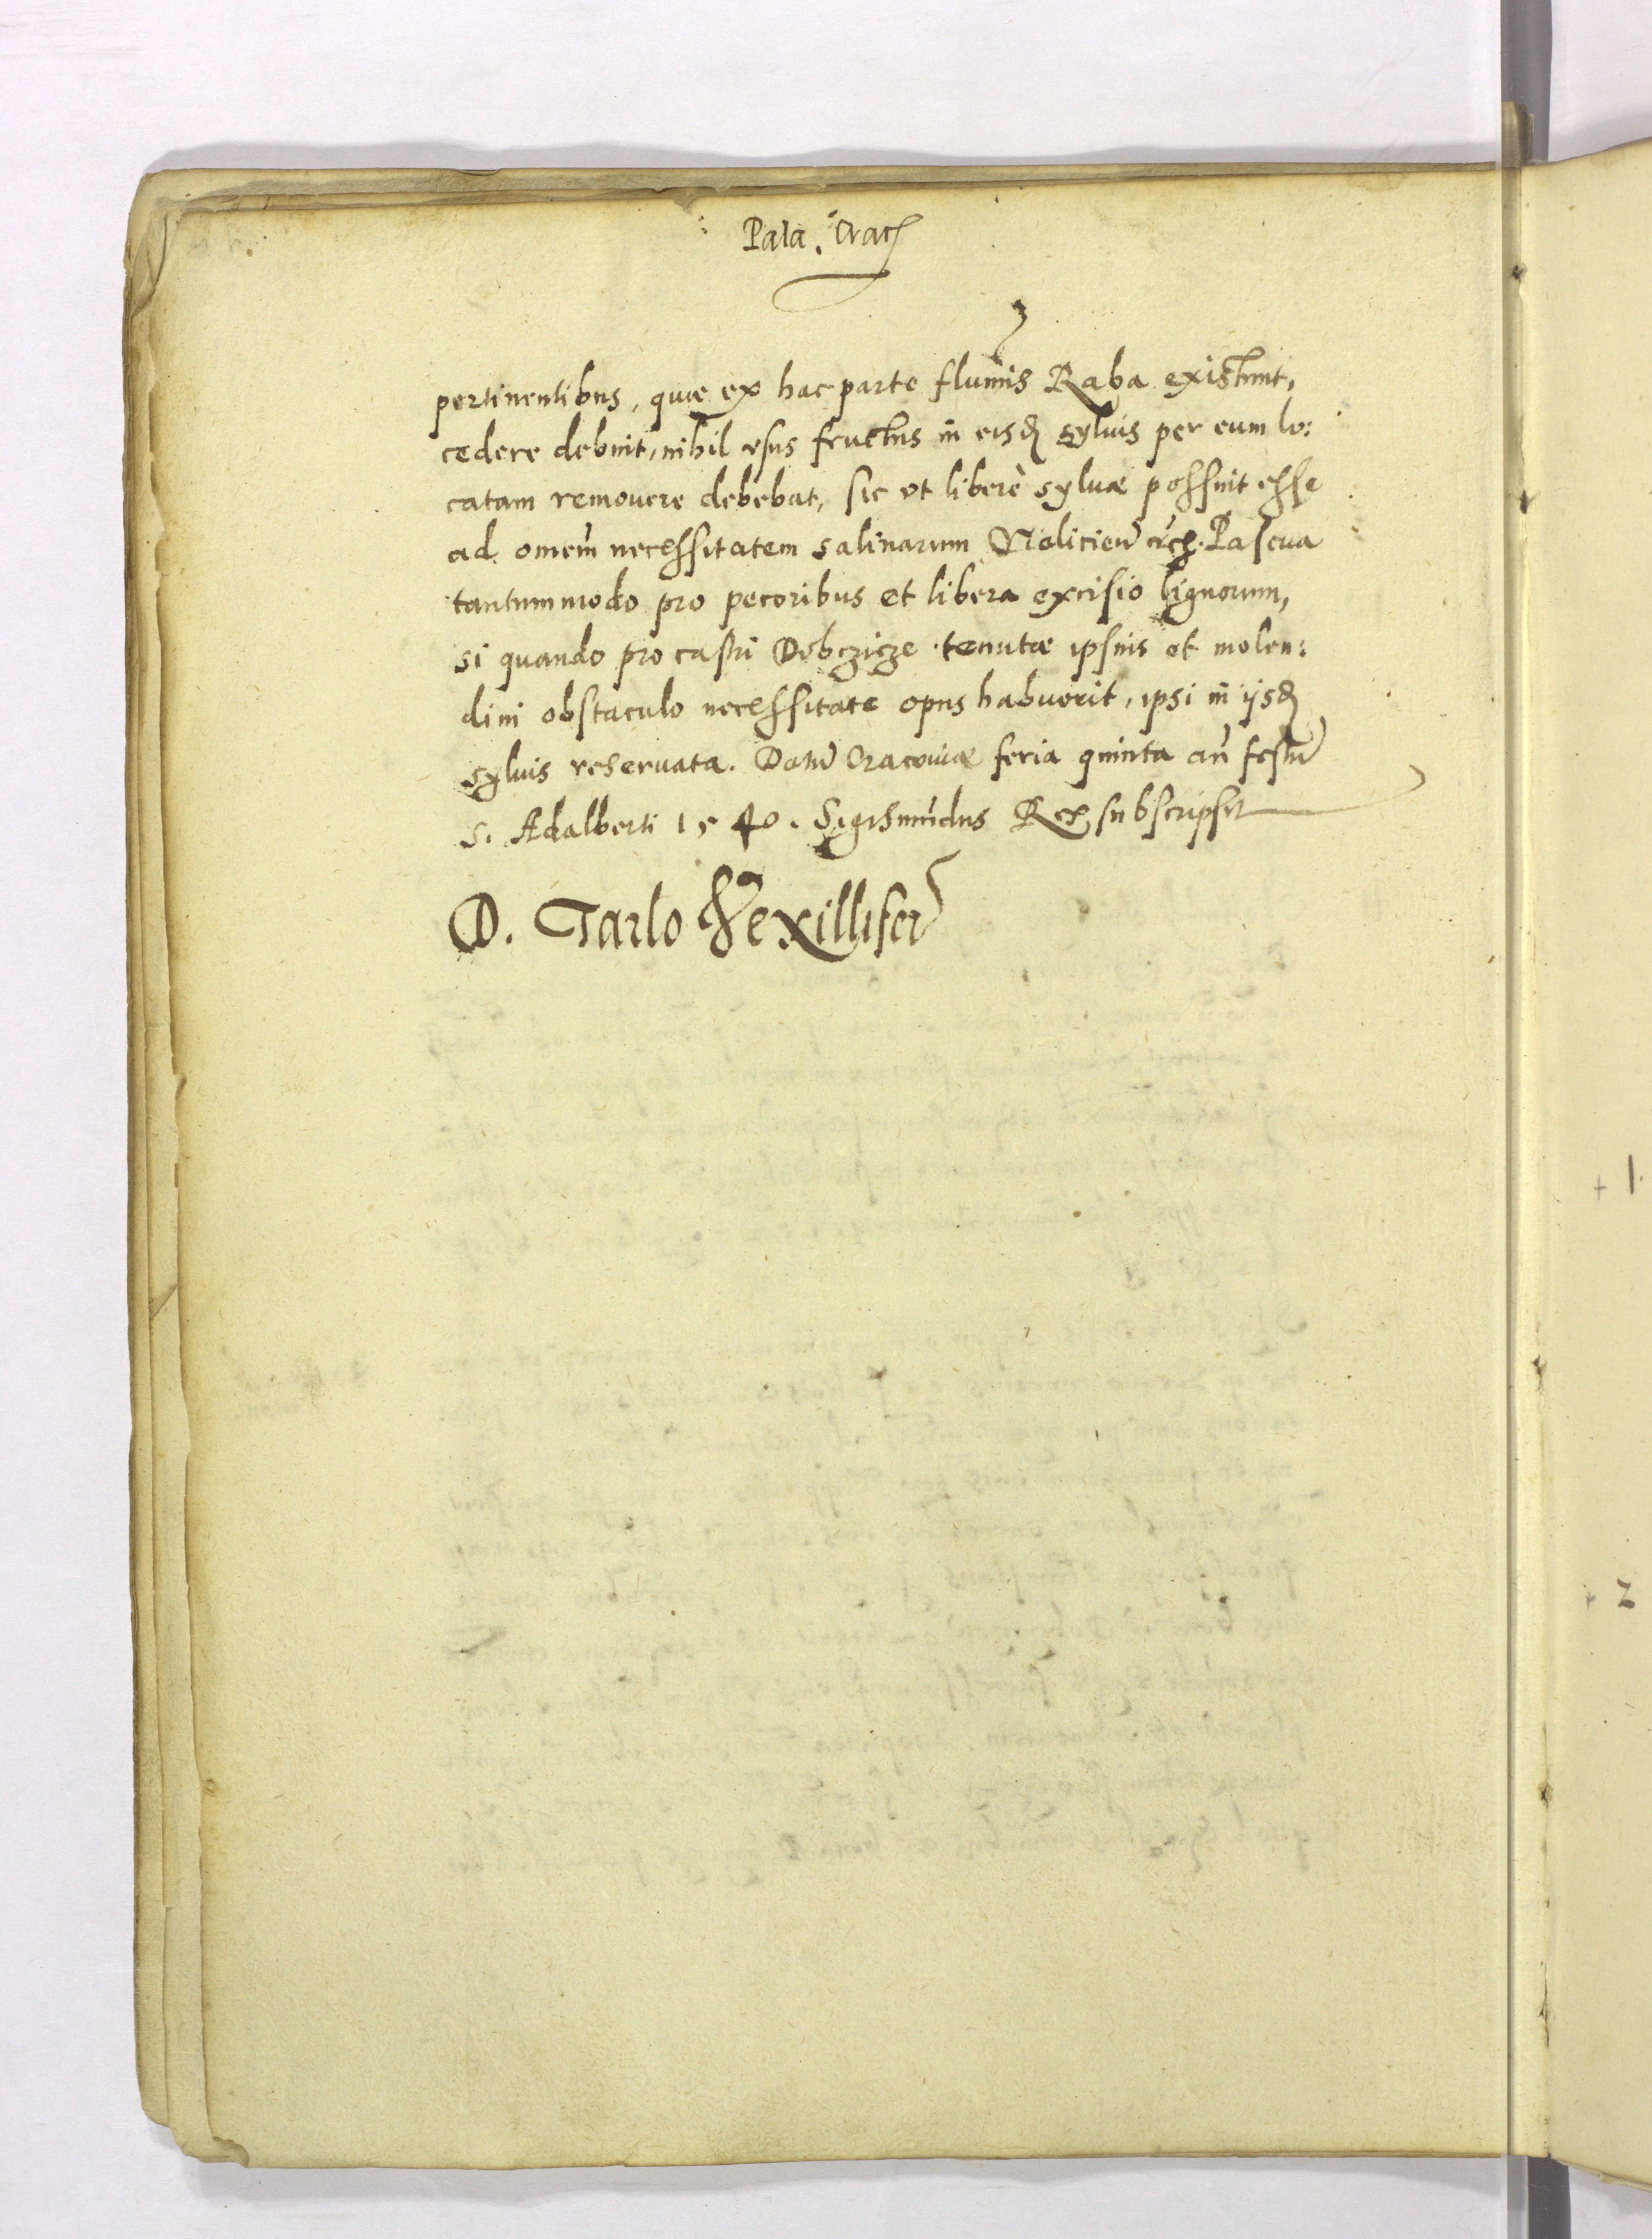 Pala. Crac
pertinentibus, quæ ex hac parte flumis Raba existunt,
cedere debuit, nihil usus fructus in eisd sylvis per eum lo:
catam removere debebat, sic ut liberè sylvæ possint esse
ad omem necessitatem salinarum Pascua
tantummodo pro pecoribus et libera excisio lignorum,
si quando pro castri Dobczicze tenutæ ipsius et molen:
dini obstaculo necessitate opus habuerit, ipsi in ijsd
sylvis reservata. Datum Cracoviæ feria quinta an festum
S. Adalberti 1540. Sigismūdus Rex subscripsit
D. Tarlo Vexillifer
+ 1.
+ 2